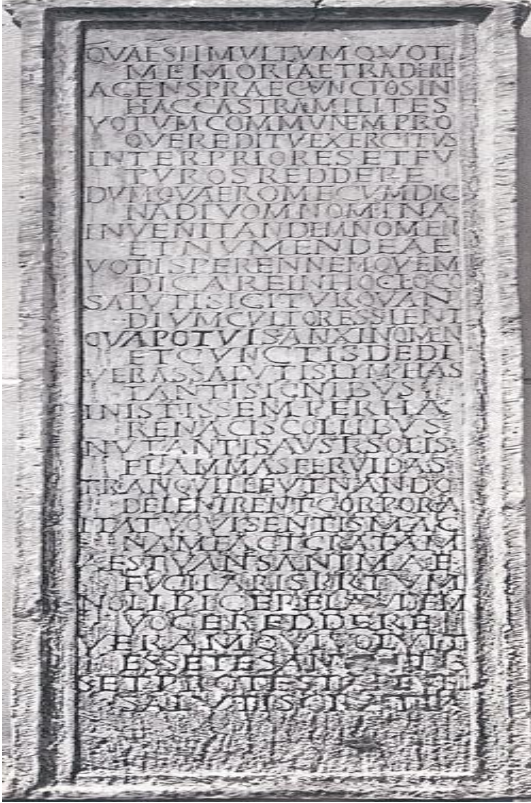 QVAESIIMVLTVMQVOT
MEMORIAETRADERE
AGENSPRAECVNCTOSIN
HACCASTRAMILITES
VOTVMCOMMVNEMPRO
QVEREDITVEXERCITVS
INTERPRIORESETFV
TVROSREDDERE
DVMQVAEROMECVMDIC
NADIVOMNOMINA
INVENITANDEMNOMEN
ETNVMENDEAE
VOTISPERENNEMQVEM
DICAREINHOCLOCO
SALVTISIGITVRQVAN
DIVMCVLTORESSIENT
QVAPOTVISANXINOMEN
ETCVNCTISDEDI
VERASSALVTISLYMPHAS
TANTISIGNIBVS
INISTISSEMPERHA
RENACISCOLLIBVS
NVTANTISAVSTRISOLIS
FLAMMASFERVIDAS
TRANQVILLEVTNANDO
DELENIRENTCORPORA
ITATVQVISENTISMAG
NAMFACTIGRATIAM
AESTVANSANIMAE
FVCILARISPIRITVM
NOLIPIGERELAVDEM
VOCEREDDERE
VERAMQVIVOLVIT
ESSETESANVM
SETPROTESTARE
SALVTISGRATIA